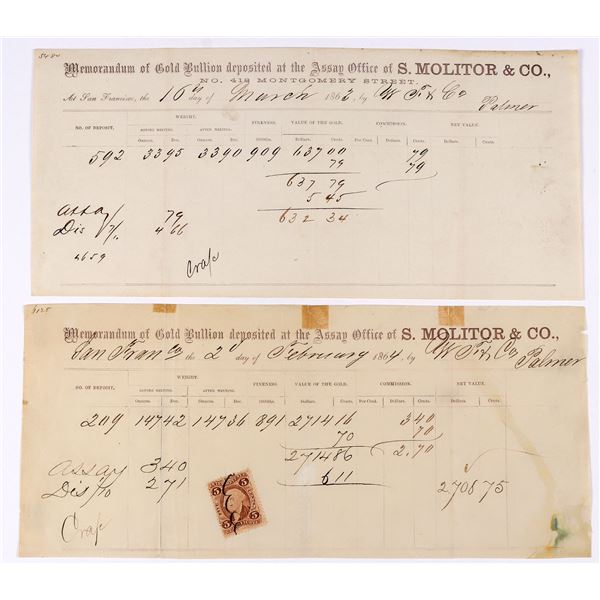 Memorandum of Gold Bullion deposited at the Assay Office of S. MOLITOR & CO.,
NO. 412 MONTGOMERY STREET.
At San Francisco, the 16th day of March 1863, by W F & Co
Palmer
WEIGHT. FINENESS. VALUE OF THE GOLD. COMMISSION. NET VALUE.
NO. OF DEPOSIT. BEFORE MELTING. AFTER MELTING.
Ounces. Dec. Ounces. Dec. 1000ths. Dollars. Cents. Per Cent. Dollars. Cents. Dollars. Cents.
592 33 95 33 90 909 637 00 79
79 79
637 79
5 45
Assay 79 632 34
Dis 4 66
4659
Memorandum of Gold Bullion deposited at the Assay Office of S. MOLITOR & CO.,
San Fran Co the 2d day of February 1864, by W F & Co
Palmer
WEIGHT. FINENESS. VALUE OF THE GOLD. COMMISSION. NET VALUE.
NO. OF DEPOSIT. BEFORE MELTING. AFTER MELTING.
Ounces. Dec. Ounces. Dec. 1000ths. Dollars. Cents. Per Cent. Dollars. Cents. Dollars. Cents.
209 147 42 147 36 891 2714 16 3 40
70 70
2714 86 2.70
Assay 3 40
6 11
Dis /10 2 71 2708 75
5 5
5 5